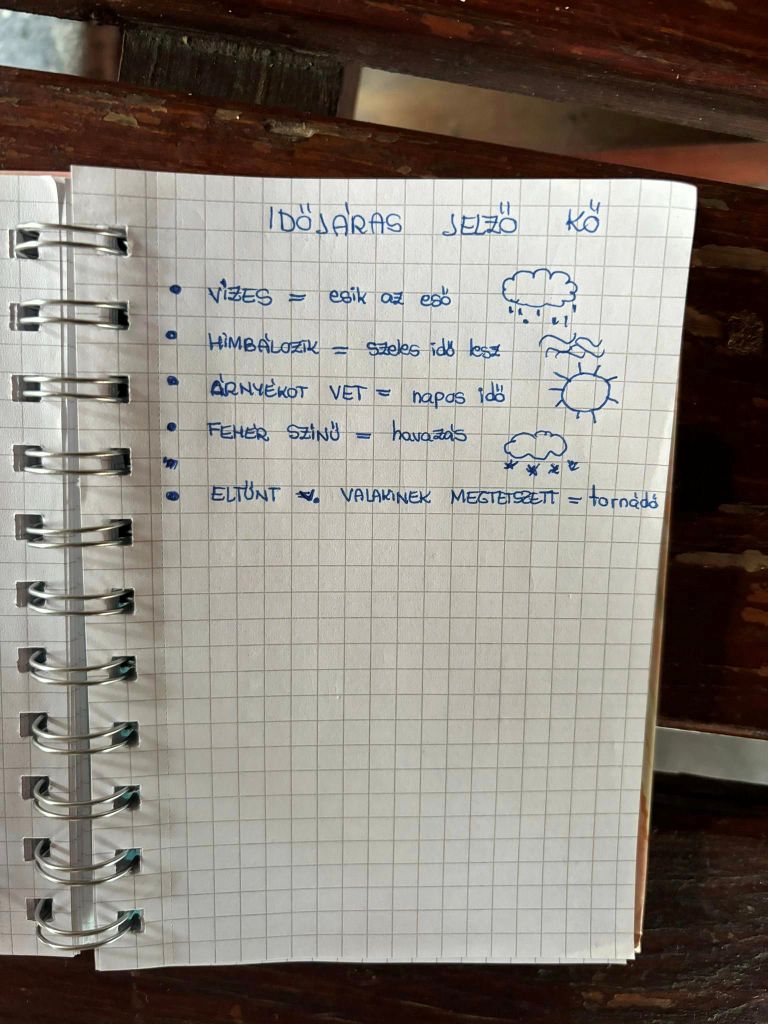 IDŐJÁRAS JELZŐ KŐ
• VIZES = esik az eső
• HIMBÁLOZIK = szeles idő lesz
• ÁRNYÉKOT VET = napos idő
• FEHÉR SZINŰ = havazás
• ELTŰNT v. VALAKINEK MEGTETSZETT = tornádó